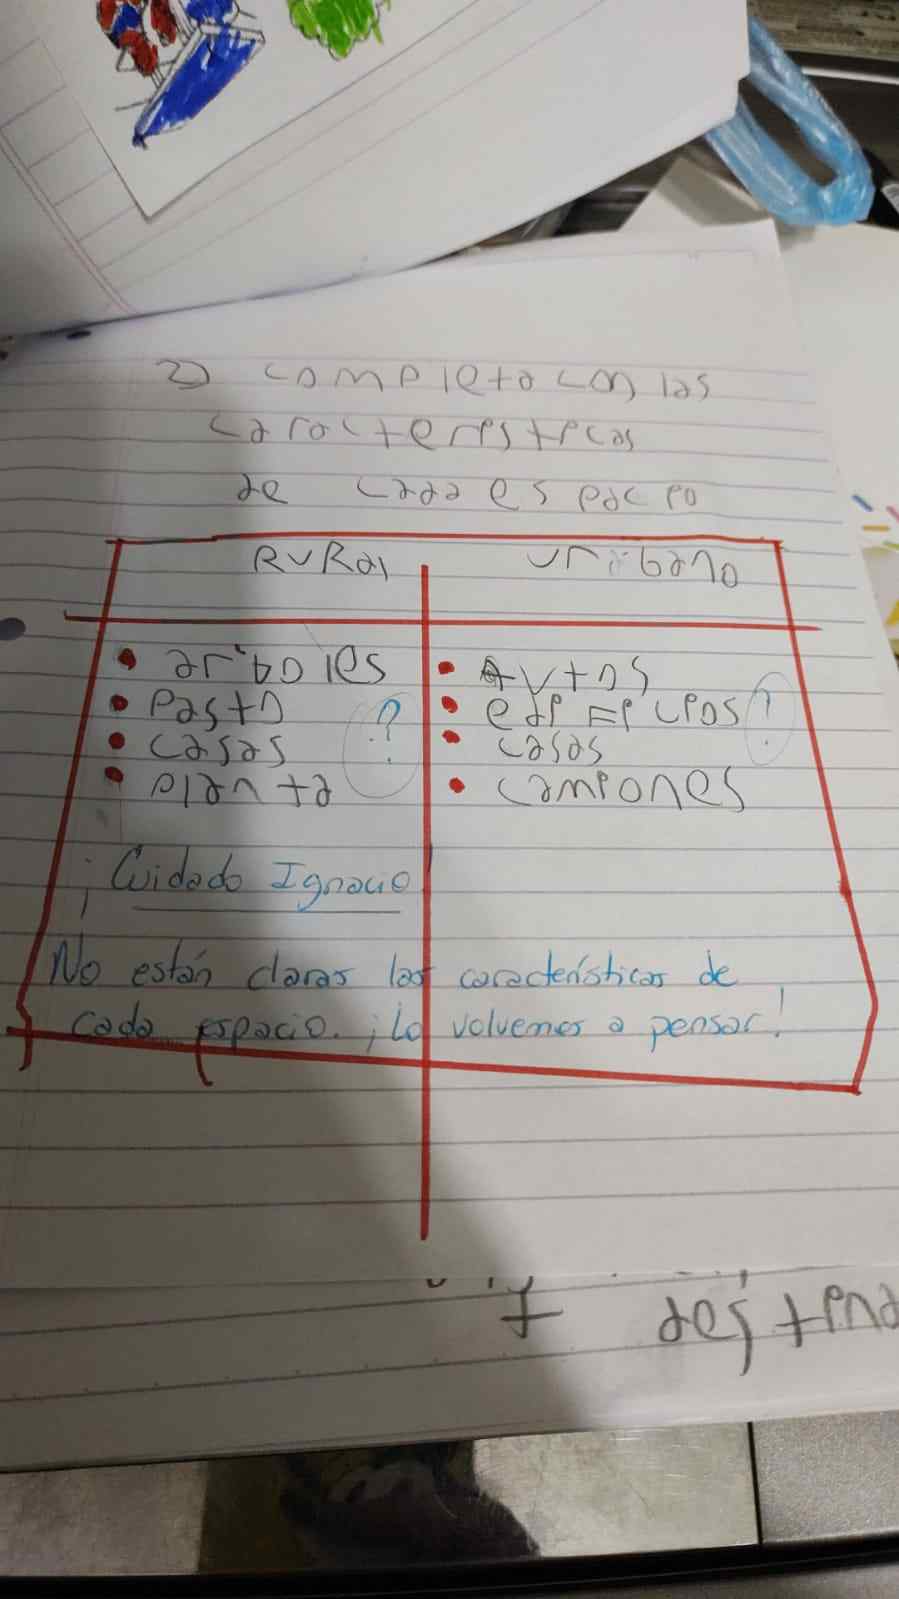 2) completo con las
caracterestecas
de cada espaceo
RuRal
urbano
arboles
Pasto
casas
planta
?
Autos
edeFecPos
casas
camiones
?
¡Cuidado Ignacio!
No están claras las características de
cada espacio. ¡Lo volvemos a pensar!